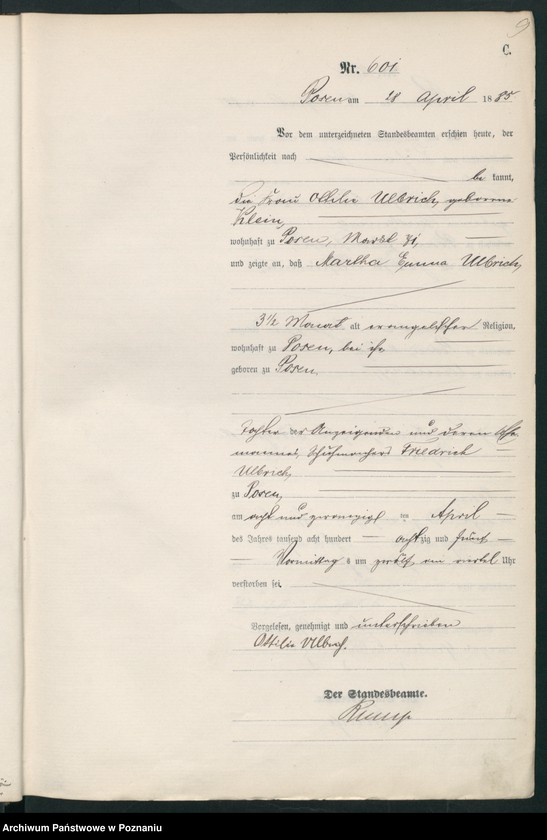 9
C.
Nr. 601
Posen am 28 April 1885
Vor dem unterzeichneten Standesbeamten erschien heute, der
Persönlichkeit nach
be kannt,
die Frau Ottilie Ulbrich, geborene
Klein,
wohnhaft zu Posen, Markt 71,
und zeigte an, daß Martha Emma Ulbrich,
3 1/2 Monat alt evangelischer Religion,
wohnhaft zu Posen, bei ihr
geboren zu Posen,
Tochter der Anzeigenden und deren Ehe
mannes, Schuhmachers Friedrich
Ulbrich,
zu Posen,
am acht und zwanzigsten April
des Jahres tausend acht hundert achtzig und fünf
Vormittags um zwölf ein viertel Uhr
verstorben sei.
Vorgelesen, genehmigt und unterschrieben
Ottilie Ulbrich.
Der Standesbeamte.
Archiwum Państwowe w Poznaniu